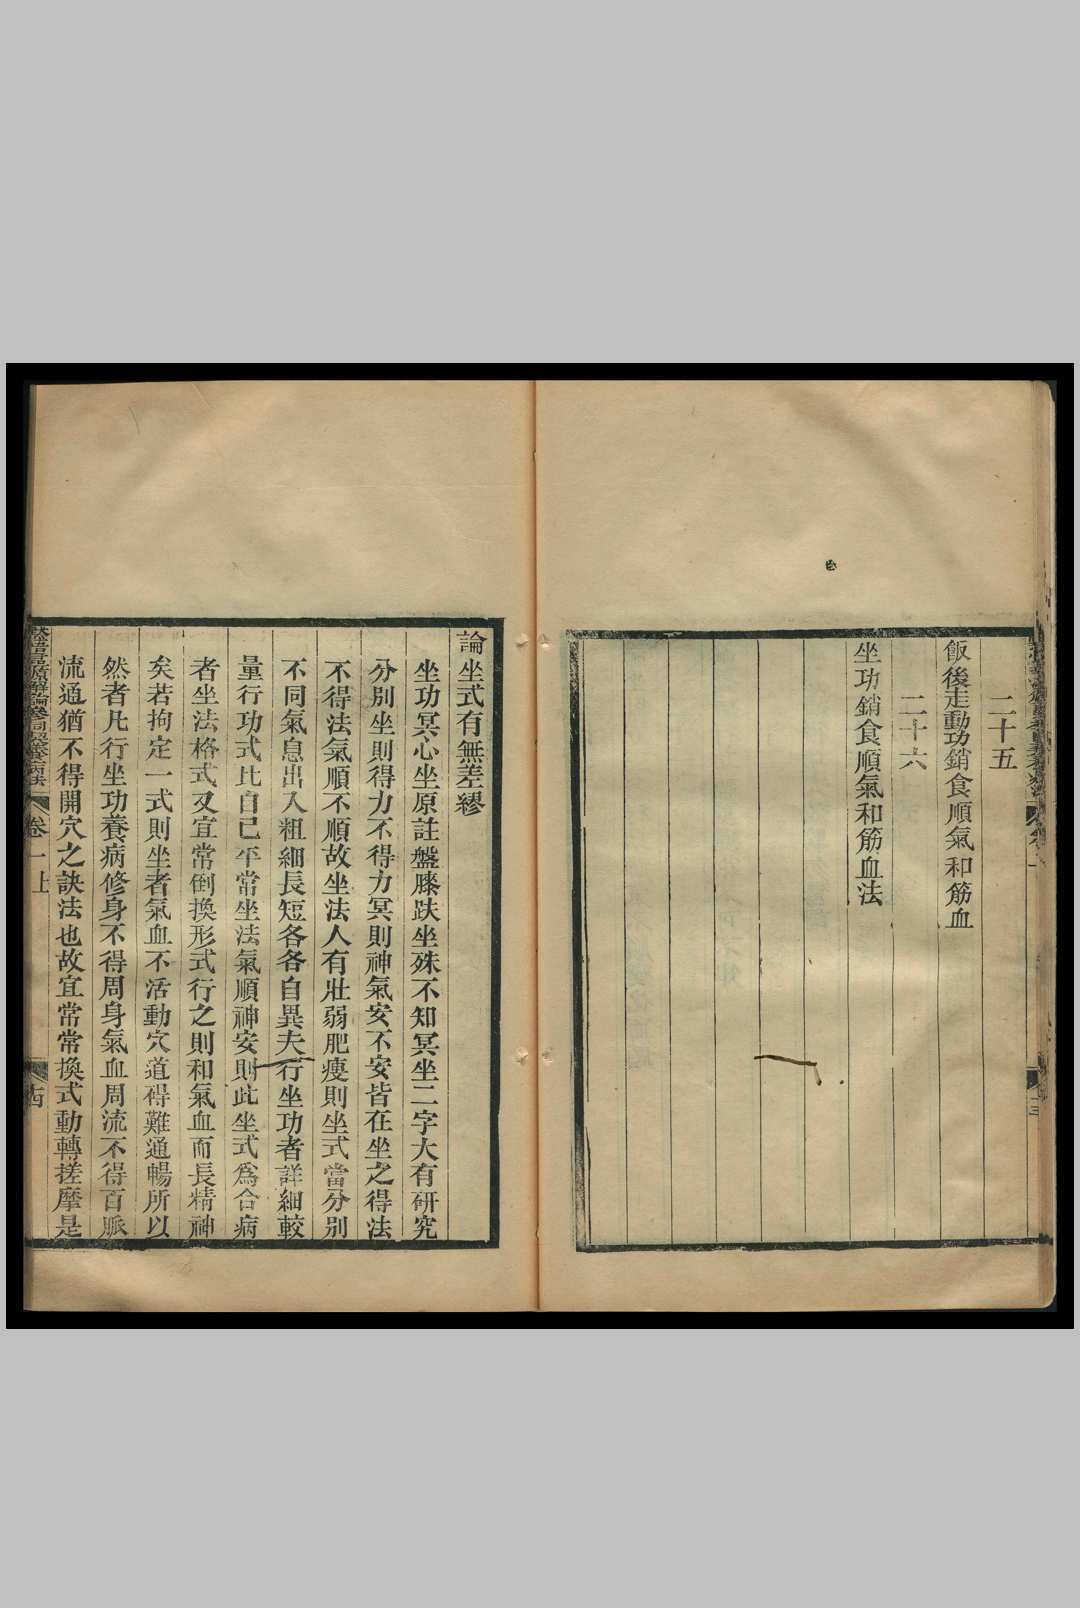 二十五
飯後走動功銷食順氣和筋血
二十六
坐功銷食順氣和筋血法
論坐式有無差繆
坐功冥心坐原註盤膝趺坐殊不知冥坐二字大有研究
分別坐則得力不得力冥則神氣安不安皆在坐之得法
不得法氣順不順故坐法人有壯弱肥瘦則坐式當分別
不同氣息出入粗細長短各各自異夫行坐功者詳細較
量行功式比自己平常坐法氣順神安則此坐式爲合病
者坐法格式又宜常倒換形式行之則和氣血而長精神
矣若拘定一式則坐者氣血不活動穴道碍難通暢所以
然者凡行坐功養病修身不得周身氣血周流不得百脈
流通猶不得開穴之訣法也故宜常常換式動轉搓摩是
卷一上